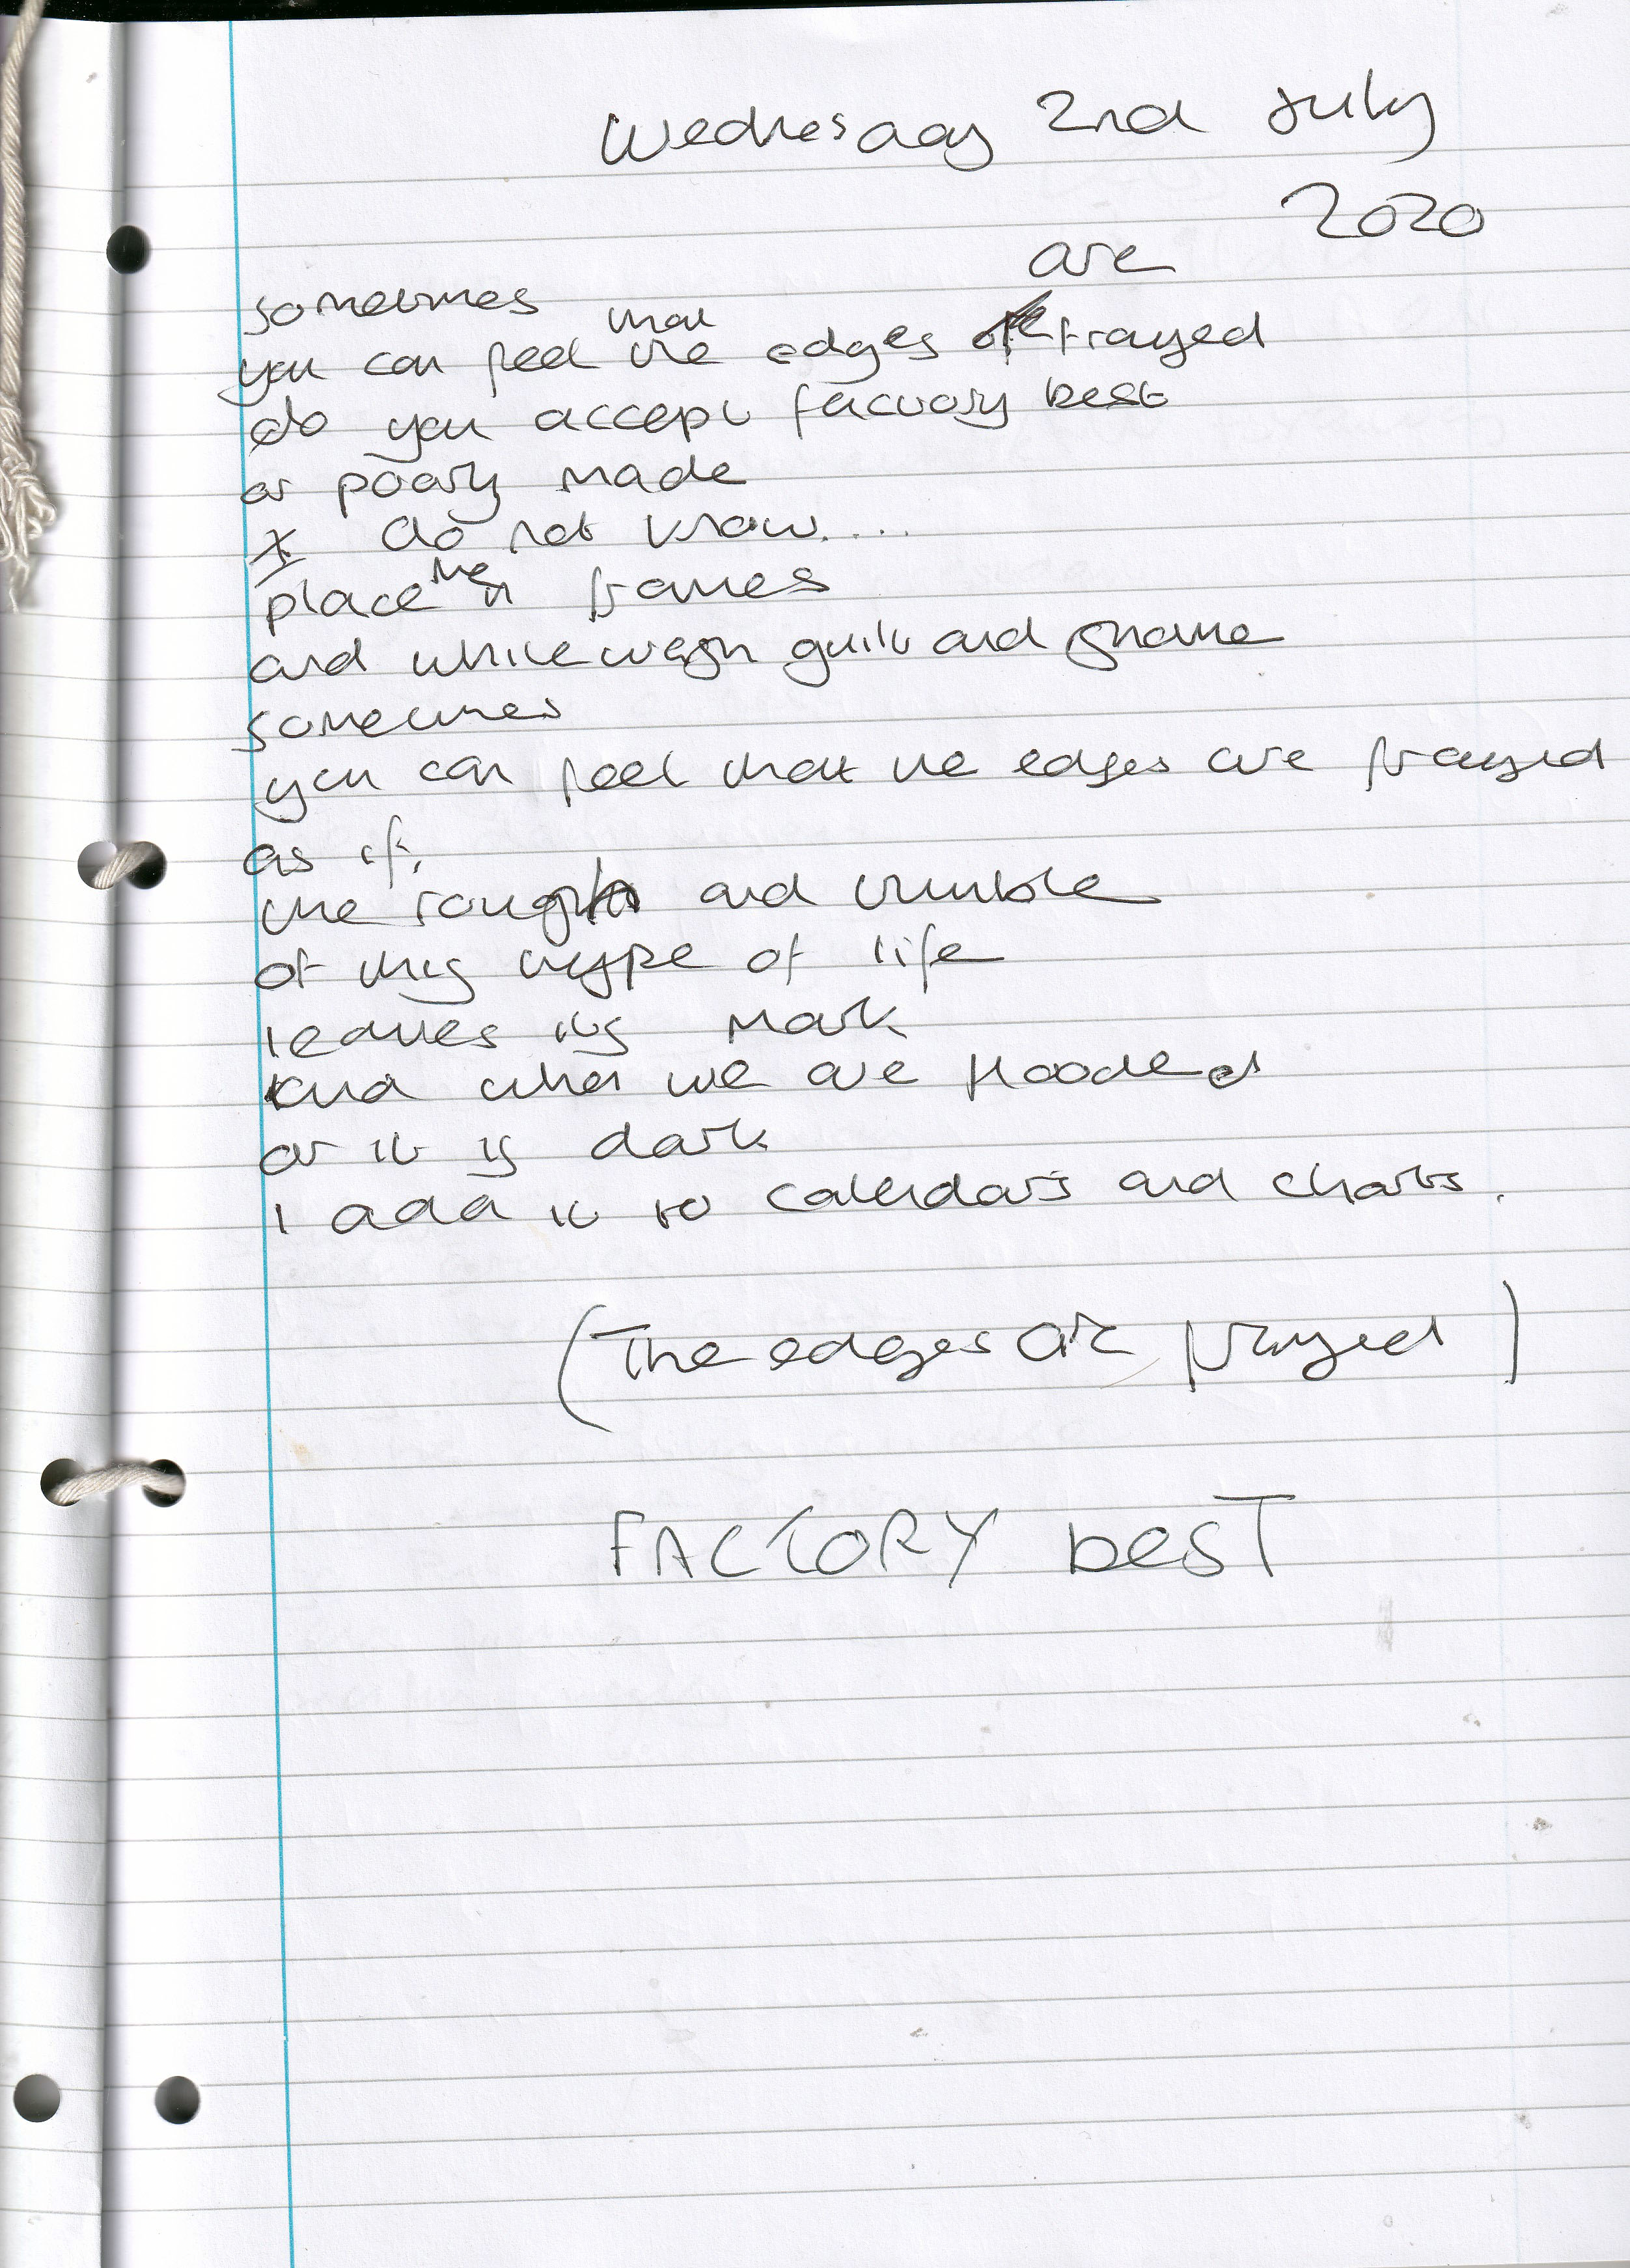 Wednesday 2nd July
2020
are
sometimes
that
you can feel the edges frayed
do you accept factory best
or poorly made
I do not know....
the
place in frames
and whitewash guilt and shame
sometimes
you can feel that the edges are frayed
as if,
the rough and tumble
of this type of life
leaves its mark
and when we are flooded
or it is dark
I add it to calendars and charts.
(The edges are frayed)
FACTORY best